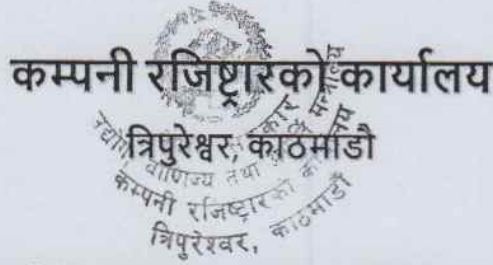 कम्पनी रजिष्ट्रारको कार्यालय
त्रिपुरेश्वर, काठमाडौं
उद्योग, वाणिज्य तथा
कम्पनी रजिष्ट्रारको
त्रिपुरेश्वर, काठमाडौं